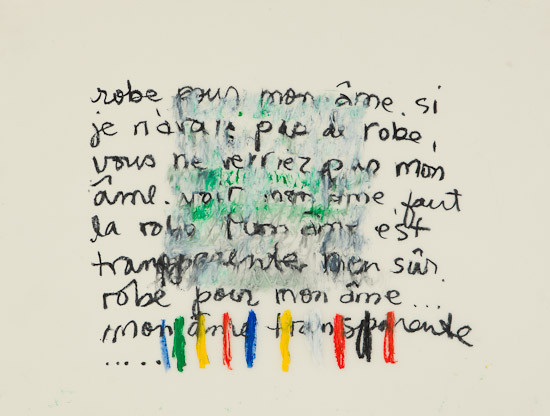 robe pour mon âme. si
je n'avais pas de robe,
vous ne verriez pas mon
âme. voir mon âme faut
la robe mon âme est
transparente bien sûr.
robe pour mon âme...
mon âme transparente
.....